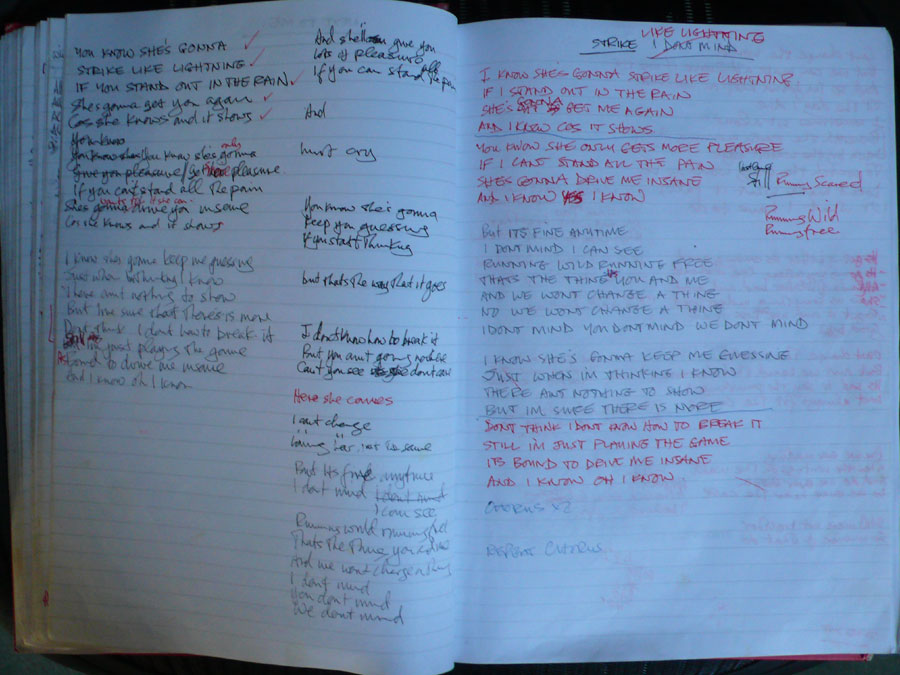 YOU KNOW SHE'S GONNA
STRIKE LIKE LIGHTNING
IF YOU STAND OUT IN THE RAIN
She's gonna get you again
Cos she knows and it shows
You know
You know she's only gonna
Give you pleasure / pleasure
If you can't stand all the pain
She's gonna drive you insane
Cos she knows and it shows
I know she's gonna keep me guessing
Just when I'm thinking I know
There aint nothing to show
But I'm sure that there is more
Dont think I dont how to break it
I'm just playing the game
Bound to drive me insane
And I know oh I know
And she'll give you
Lots of pleasure
If you can stand all the pain
And
hurt cry
You know she's gonna
Keep you guessing
If you start thinking
but thats the way that it goes
I dont know how to break it
But you aint going nowhere
Cant you see dont care
Here she comes
I cant change
But its fine anytime
I dont mind I dont mind
I can see
Running wild running free
Thats the thing you and me
And we wont change a thing
I dont mind
You dont mind
We dont mind
LIKE LIGHTNING
STRIKE I DONT MIND
I KNOW SHE'S GONNA STRIKE LIKE LIGHTNING
IF I STAND OUT IN THE RAIN
SHE'S GONNA GET ME AGAIN
AND I KNOW COS IT SHOWS
YOU KNOW SHE ONLY GETS MORE PLEASURE
IF I CANT STAND ALL THE PAIN
SHE'S GONNA DRIVE ME INSANE
AND I KNOW YES I KNOW
Running Scared
Running Wild
Running free
BUT ITS FINE ANYTIME
I DONT MIND I CAN SEE
RUNNING WILD RUNNING FREE
THATS THE THING YOU AND ME
AND WE WONT CHANGE A THING
NO WE WONT CHANGE A THING
I DONT MIND YOU DONT MIND WE DONT MIND
I KNOW SHE'S GONNA KEEP ME GUESSING
JUST WHEN IM THINKING I KNOW
THERE AINT NOTHING TO SHOW
BUT IM SURE THERE IS MORE
DONT THINK I DONT KNOW HOW TO BREAK IT
STILL IM JUST PLAYING THE GAME
ITS BOUND TO DRIVE ME INSANE
AND I KNOW OH I KNOW.
CHORUS X2
REPEAT CHORUS